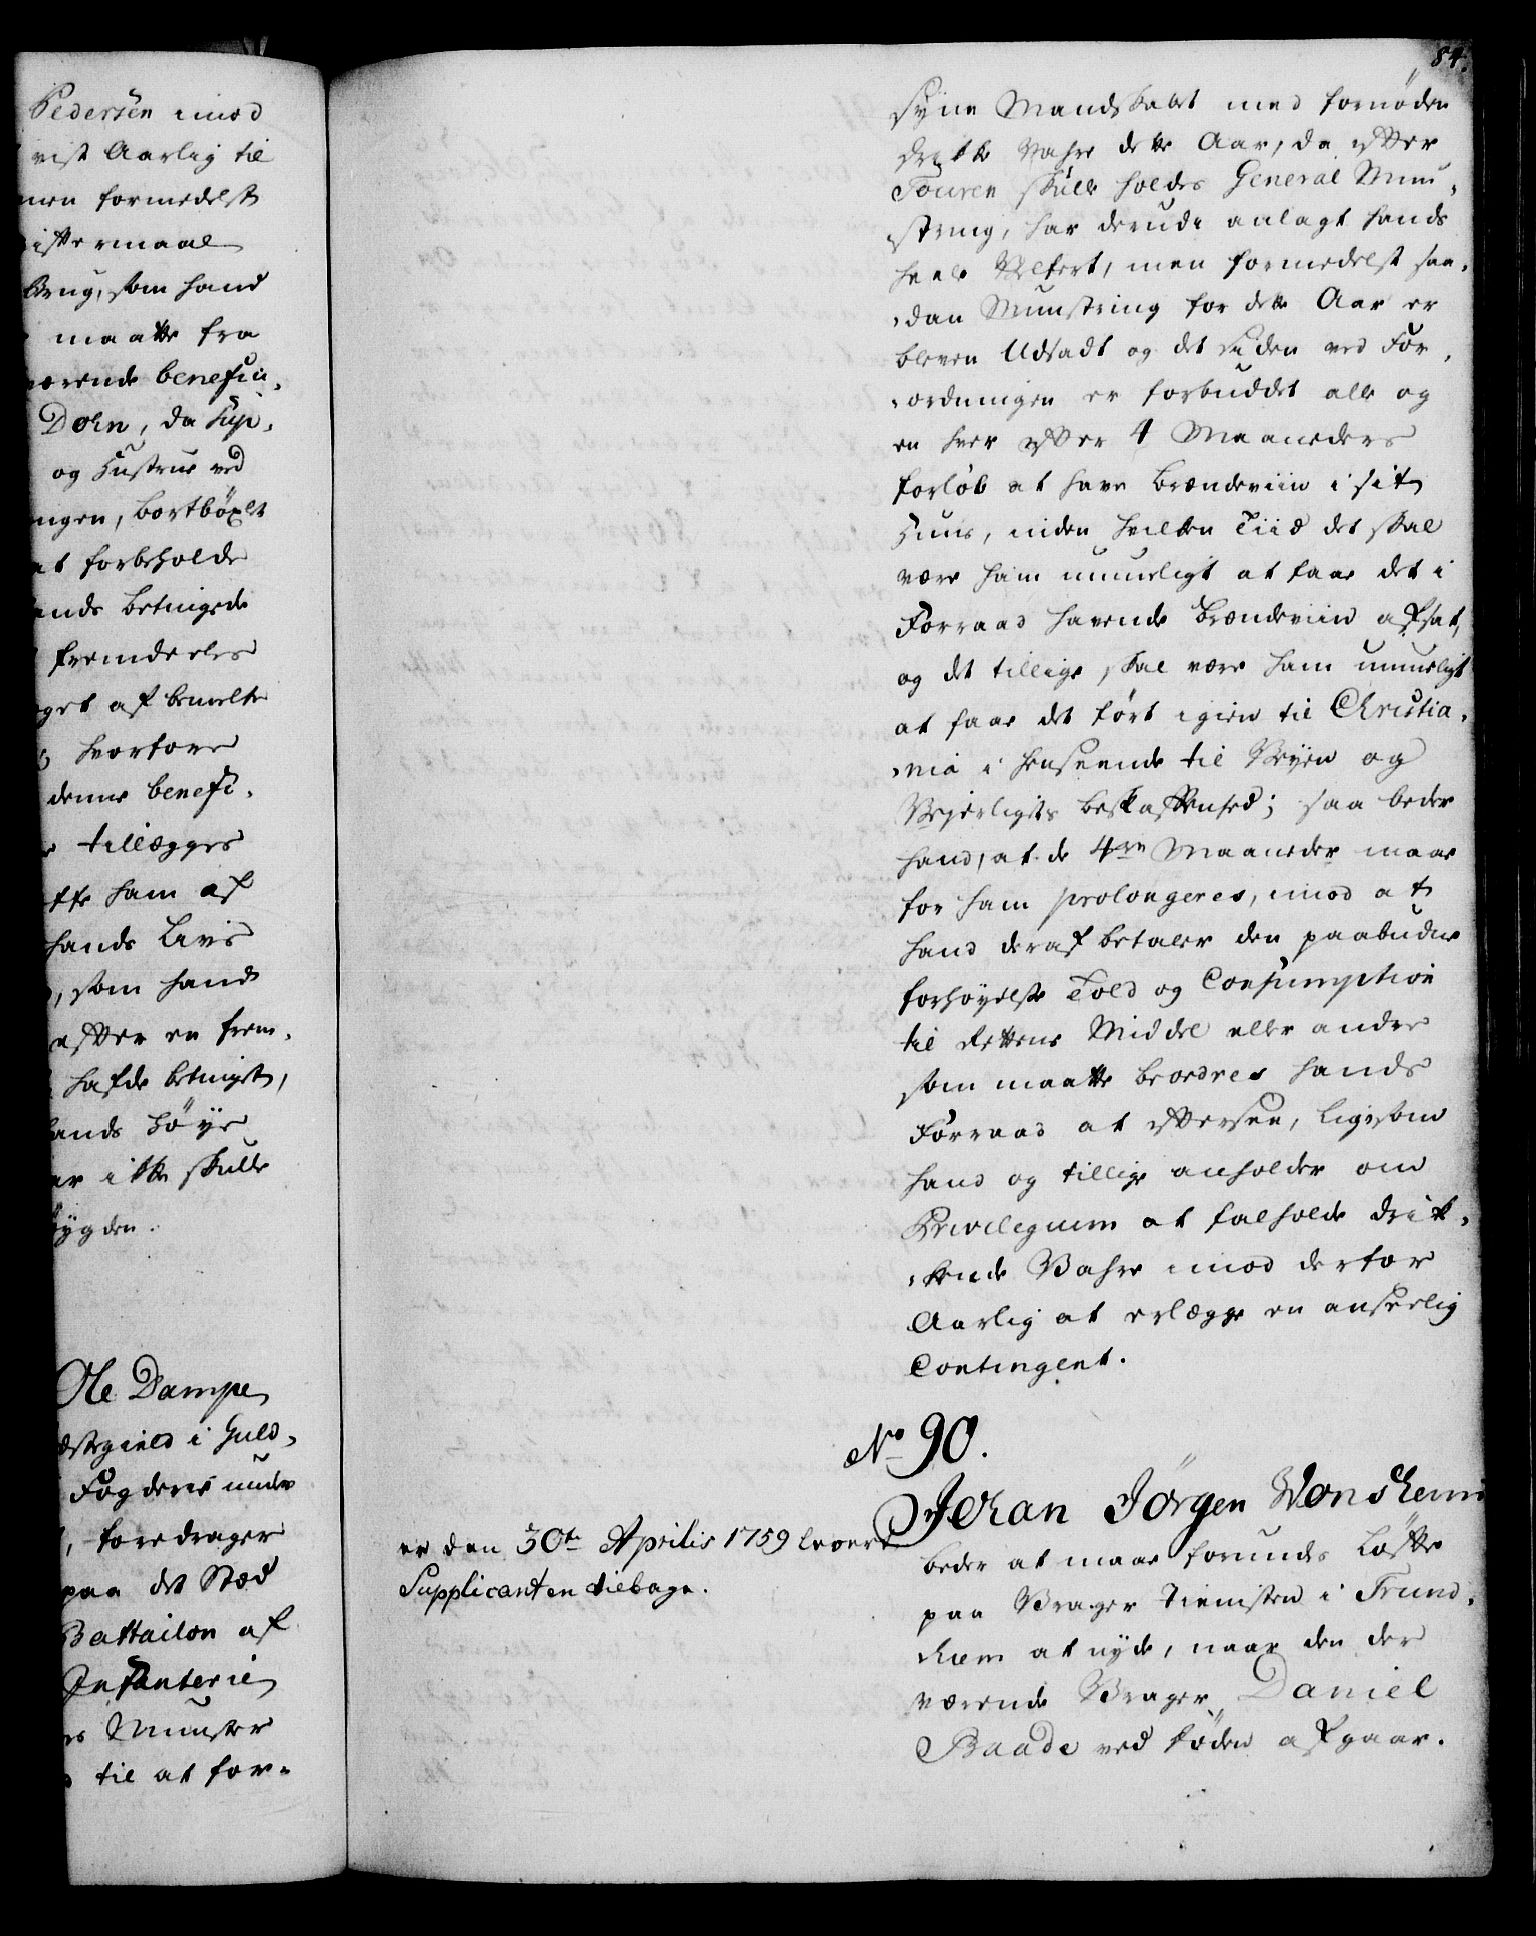 Pedersen imod
vist Aarlig til
men formedelst
istermaal
Brug, som hand
maatte fra
værende benefici-
Dorn, da Sup-
og Hustrue ved
ingen, bortböxlet
at forbeholde
hands betingede
fremdeeles
get af bemelte
hvorfore
denne benefi-
tillægges
tte ham af
hands Livs
, som hand
efter en frem-
hafde betinget,
hands Höye
ar ikke skulle
bygden.
Ole Dampe
æstegield i Guld-
Fogderie under
, foredrager
paa det Stæd
Battailon af
Infanterie
es Munster
til at for-
84.
syne Mandskabet med fornöden
drikke Vahre dette Aar, da efter
Touren skulle holdes General Mun-
string, har derudi anlagt hands
heele Velfert, men formedelst saa-
dan Munstring for dette Aar er
bleven Udsadt og det siden ved For-
ordningen er forbuddet alle og
en hver efter 4 Maaneders
forlöb at have Brændeviin i sit
Huus, inden hvilken Tiid det skal
være ham umueligt at faae det i
Forraad havende Brændeviin afsat,
og det tillige skal være ham umueligt
at faae det fört igien til Christia-
nia i henseende til Veyen og
Veyerligets beskaffenhed; saa beder
hand, at de 4re Maaneder maae
for ham prolongeres, imod at
hand deraf betaler den paabudne
forhöyelse Told og Consumption
til Rettens Middel eller andre
som maatte beordres hands
Forraad at efterse, ligesom
hand og tillige anholder om
Privilegium at falholde drik-
kende Vahre imod derfor
Aarlig at erlægge en anseelig
Contingent.
No 90.
Johan Jörgen Wonshem
beder at maae forundes Löfte
paa Vrager Tienisten i Trund-
hiem at nyde, naar den der
værende Vrager Daniel
Baade ved döden afgaar.
er den 30te Aprilis 1759 leveret
Supplicanten tilbage.